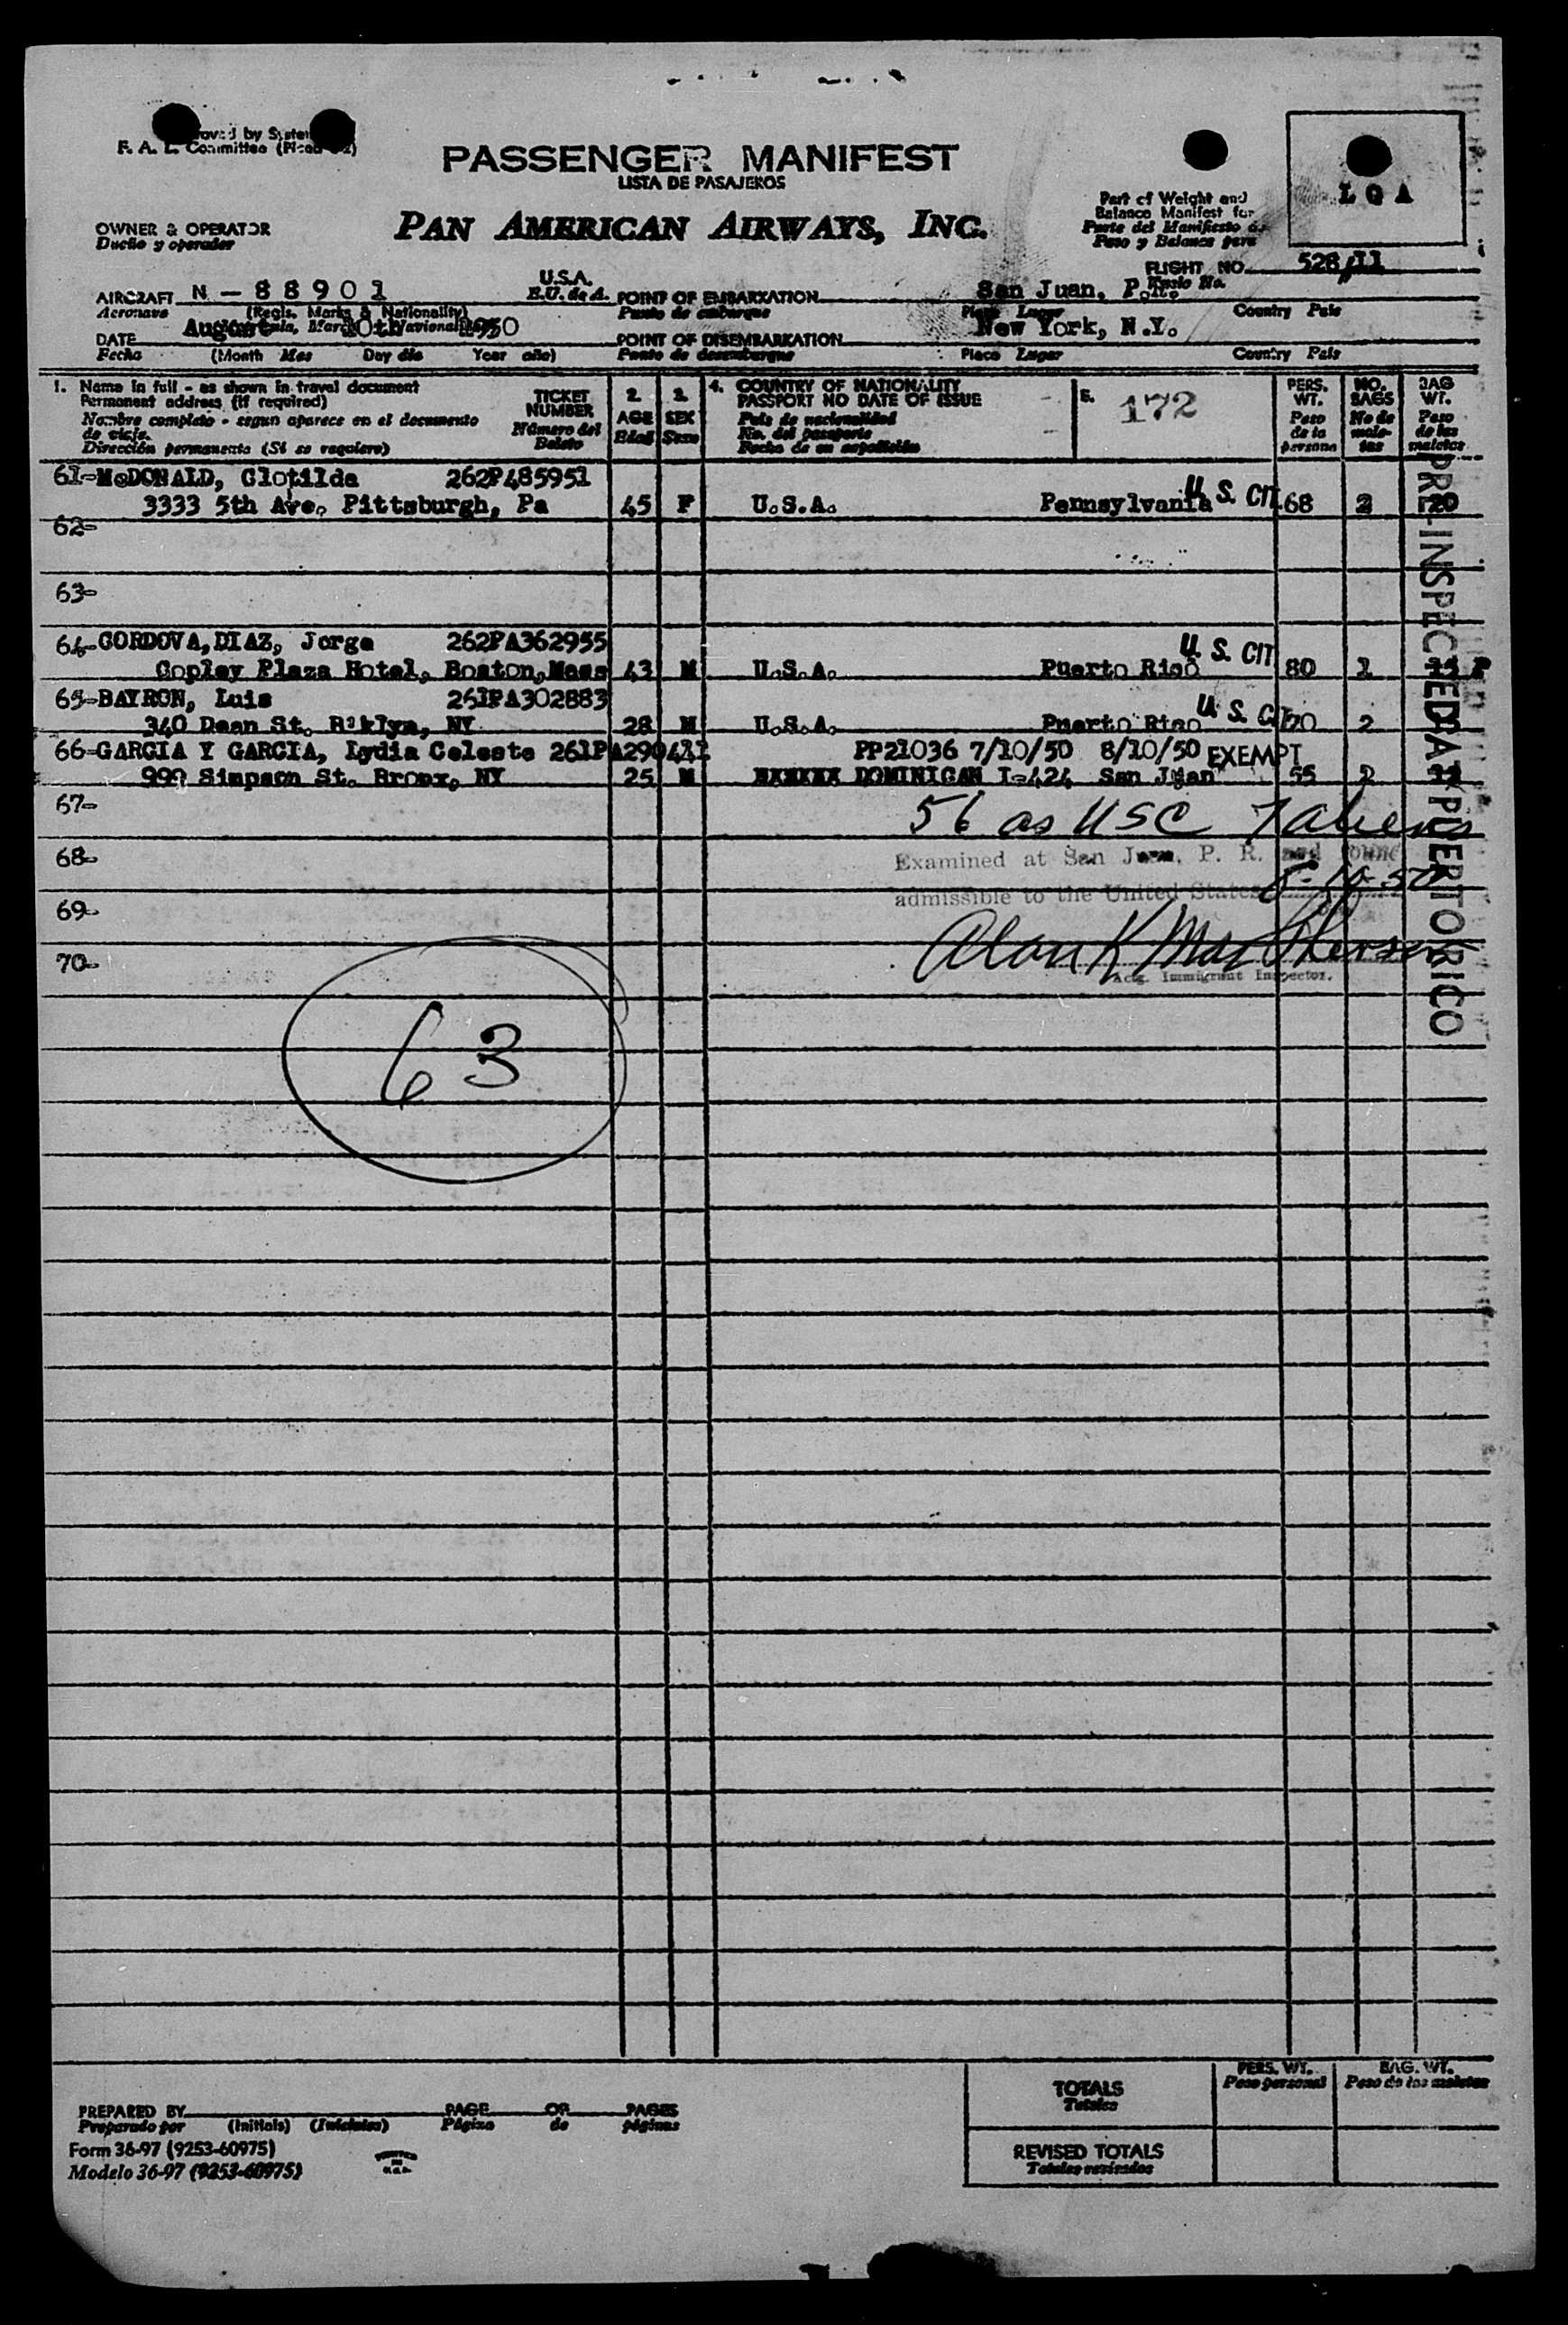 F. A. L. Committee
PASSENGER MANIFEST
LISTA DE PASAJEROS
PAN AMERICAN AIRWAYS, INC.
OWNER & OPERATOR
Dueño y operador
Part of Weight and
Balance Manifest for
Parte del Manifiesto de
Peso y Balance para
L Q A
FLIGHT NO. 528/11
Vuelo No.
AIRCRAFT N - 88901 U.S.A.
Aeronave (Regis. Marks & Nationality) E.U. de A.
POINT OF EMBARKATION San Juan, P.R.
Punto de embarque Place Lugar Country País
DATE August 10th 1950
Fecha (Month Mes Day día Year año)
POINT OF DISEMBARKATION New York, N.Y.
Punto de desembarque Place Lugar Country País
1. Name in full - as shown in travel document
Permanent address (if required)
Nombre completo - segun aparece en el documento
de viaje.
Dirección permanente (Si se requiere)
TICKET
NUMBER
Número del
Boleto
2.
AGE
Edad
3.
SEX
Sexo
4. COUNTRY OF NATIONALITY
PASSPORT NO DATE OF ISSUE
País de nacionalidad
No. del pasaporte
Fecha de su expedición
5. 172
PERS.
WT.
Peso
de la
persona
NO.
BAGS
No de
male-
tas
BAG
WT.
Peso
de las
maletas
61-McDONALD, Clotilde 262P485951
3333 5th Ave. Pittsburgh, Pa 45 F U.S.A. Pennsylvania U. S. CIT 68 2 20
62-
63-
64-CORDOVA,DIAZ, Jorge 262PA362955
Copley Plaza Hotel, Boston,Mass 43 M U.S.A. Puerto Rico U. S. CIT 80 1
65-BAYRON, Luis 261PA302883
340 Dean St. Bklyn, NY 28 M U.S.A. Puerto Rico U. S. CIT 70 2
66-GARCIA Y GARCIA, Lydia Celeste 261PA290411 PP21036 7/10/50 8/10/50 EXEMPT
999 Simpson St. Bronx, NY 25 M DOMINICAN I-424 San Juan 55 2
67-
56 as USC 7 aliens
68-
Examined at San Juan, P. R. and found
admissible to the United States 8-10-50
69-
70-
Actg. Immigrant Inspector.
PRE-INSPECTED AT PUERTO RICO
63
PREPARED BY
Preparado por (Initials) (Iniciales)
PAGE OF PAGES
Página de páginas
Form 36-97 (9253-60975)
Modelo 36-97 (9253-60975)
TOTALS
Totales
PERS. WT.
Peso personal
BAG. WT.
Peso de las maletas
REVISED TOTALS
Totales revisados